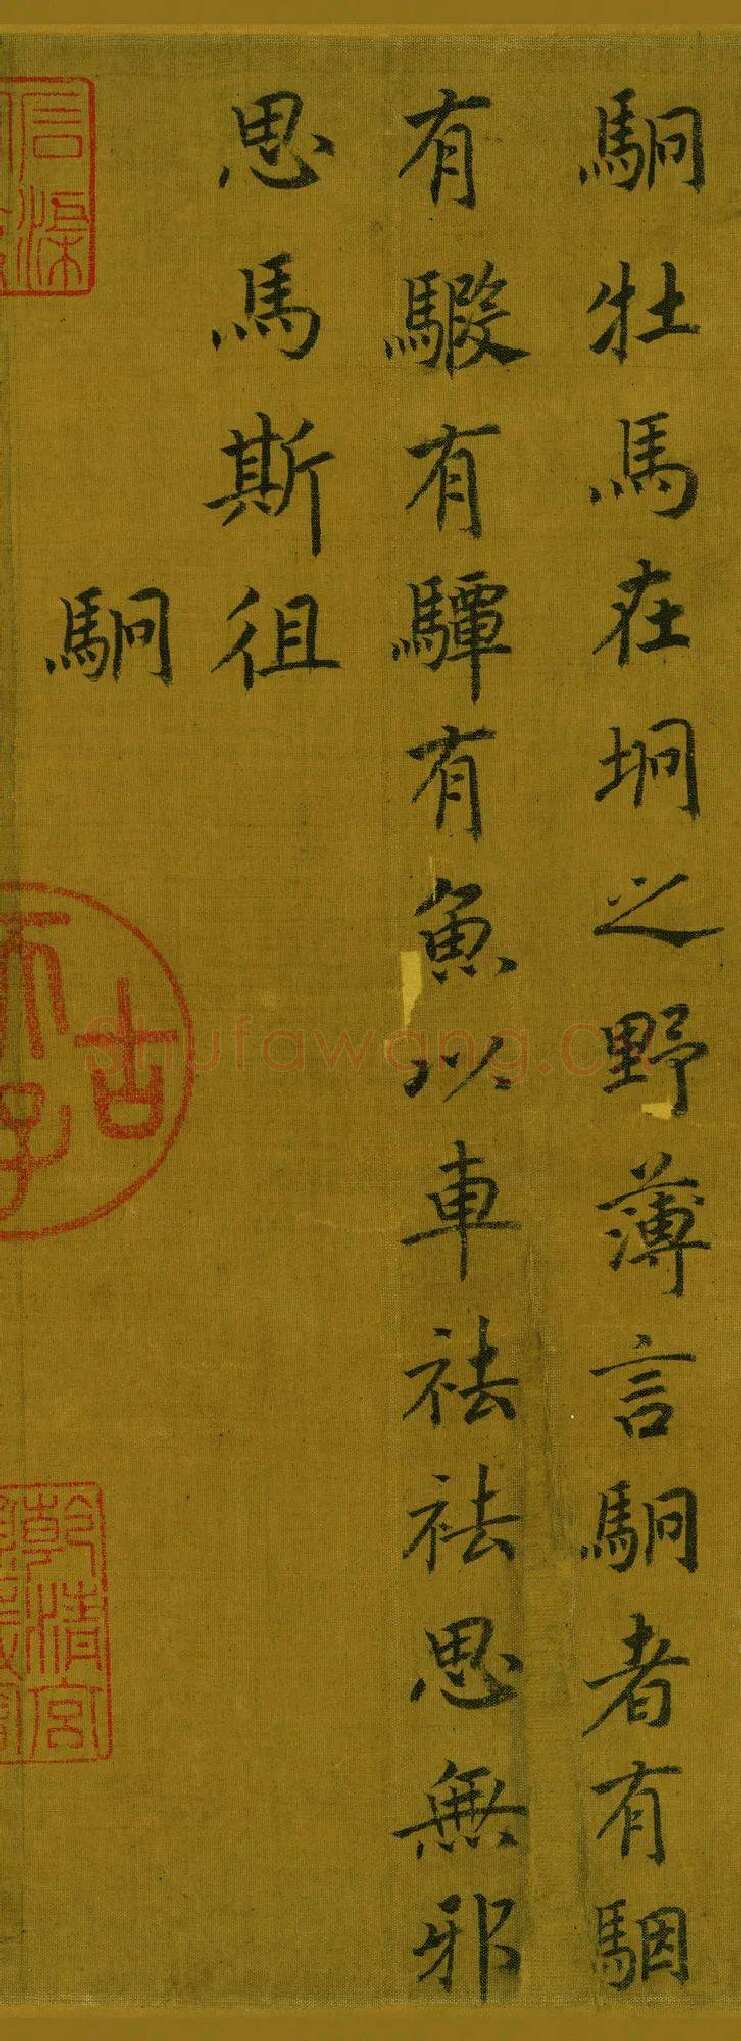 駉牡馬在坰之野薄言駉者有駰
有騢有驔有魚以車祛祛思無邪
思馬斯徂
駉
古
天子
乾清宮
信
shufawang.cn